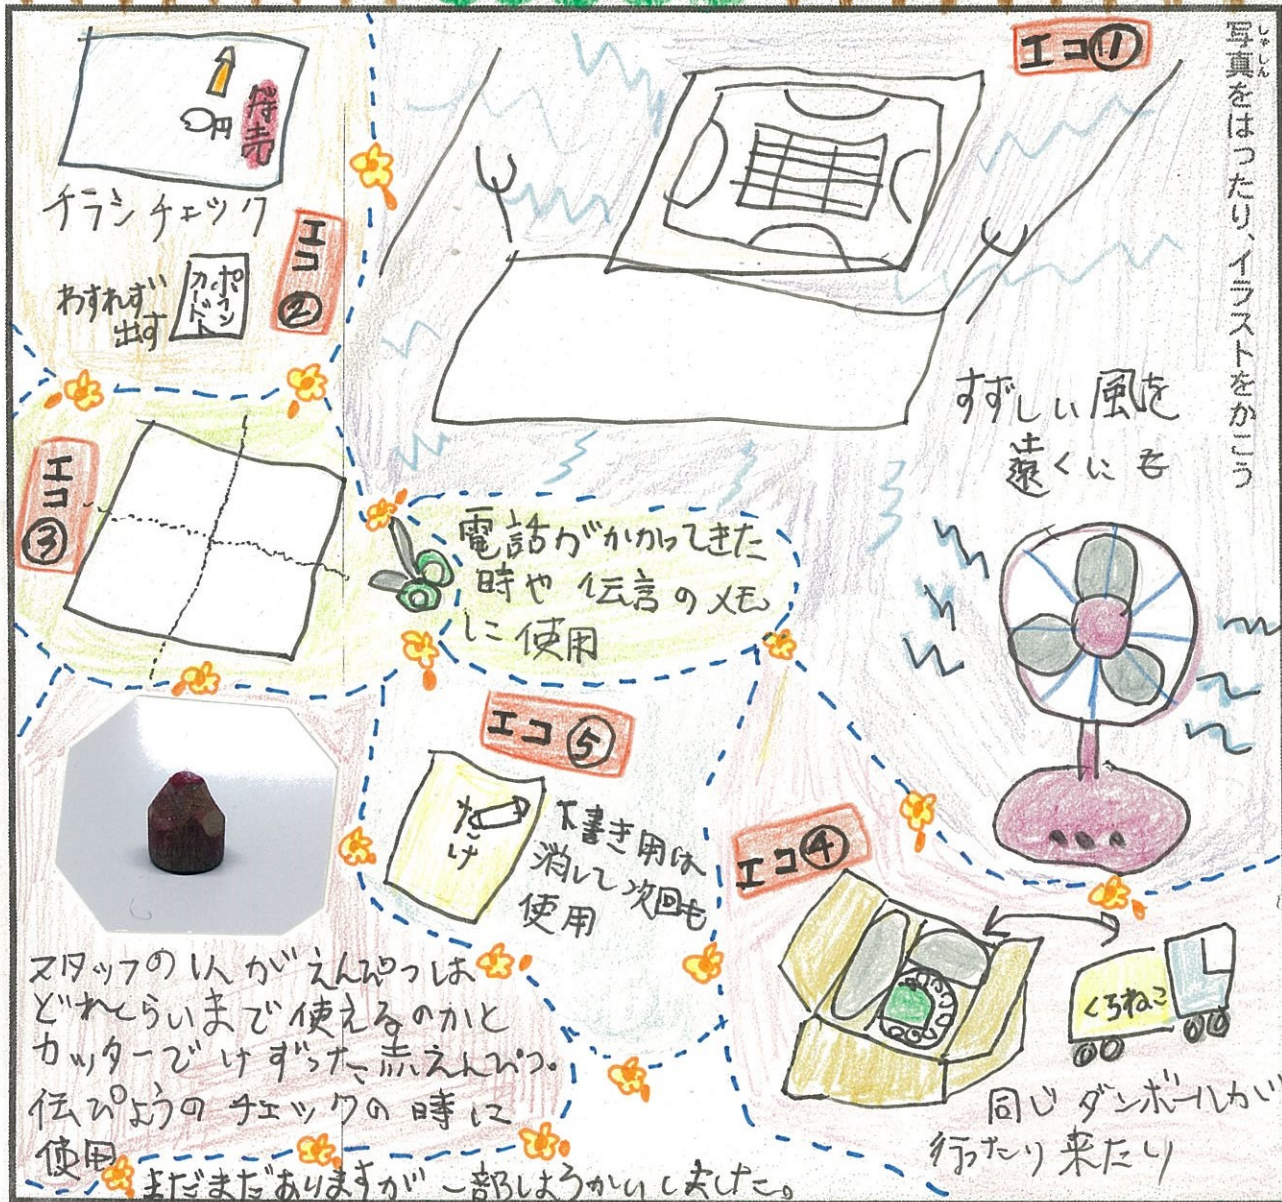 写真をはったり、イラストをかこう
しゃしん
エコ①
すずしい風を
遠くにも
円
特売
チラシチェック
エコ②
わすれず
出す
ポイン
カード
エコ③
電話がかかってきた
時や伝言のメモ
に使用
エコ⑤
だけ
下書き用は
消して次回も
使用
エコ④
くろねこ
同じダンボールが
行ったり来たり
スタッフの人がえんぴつは
どれくらいまで使えるのかと
カッターでけずった赤えんぴつ。
伝ぴょうのチェックの時に
使用
まだまだありますが一部しょうかいしました。